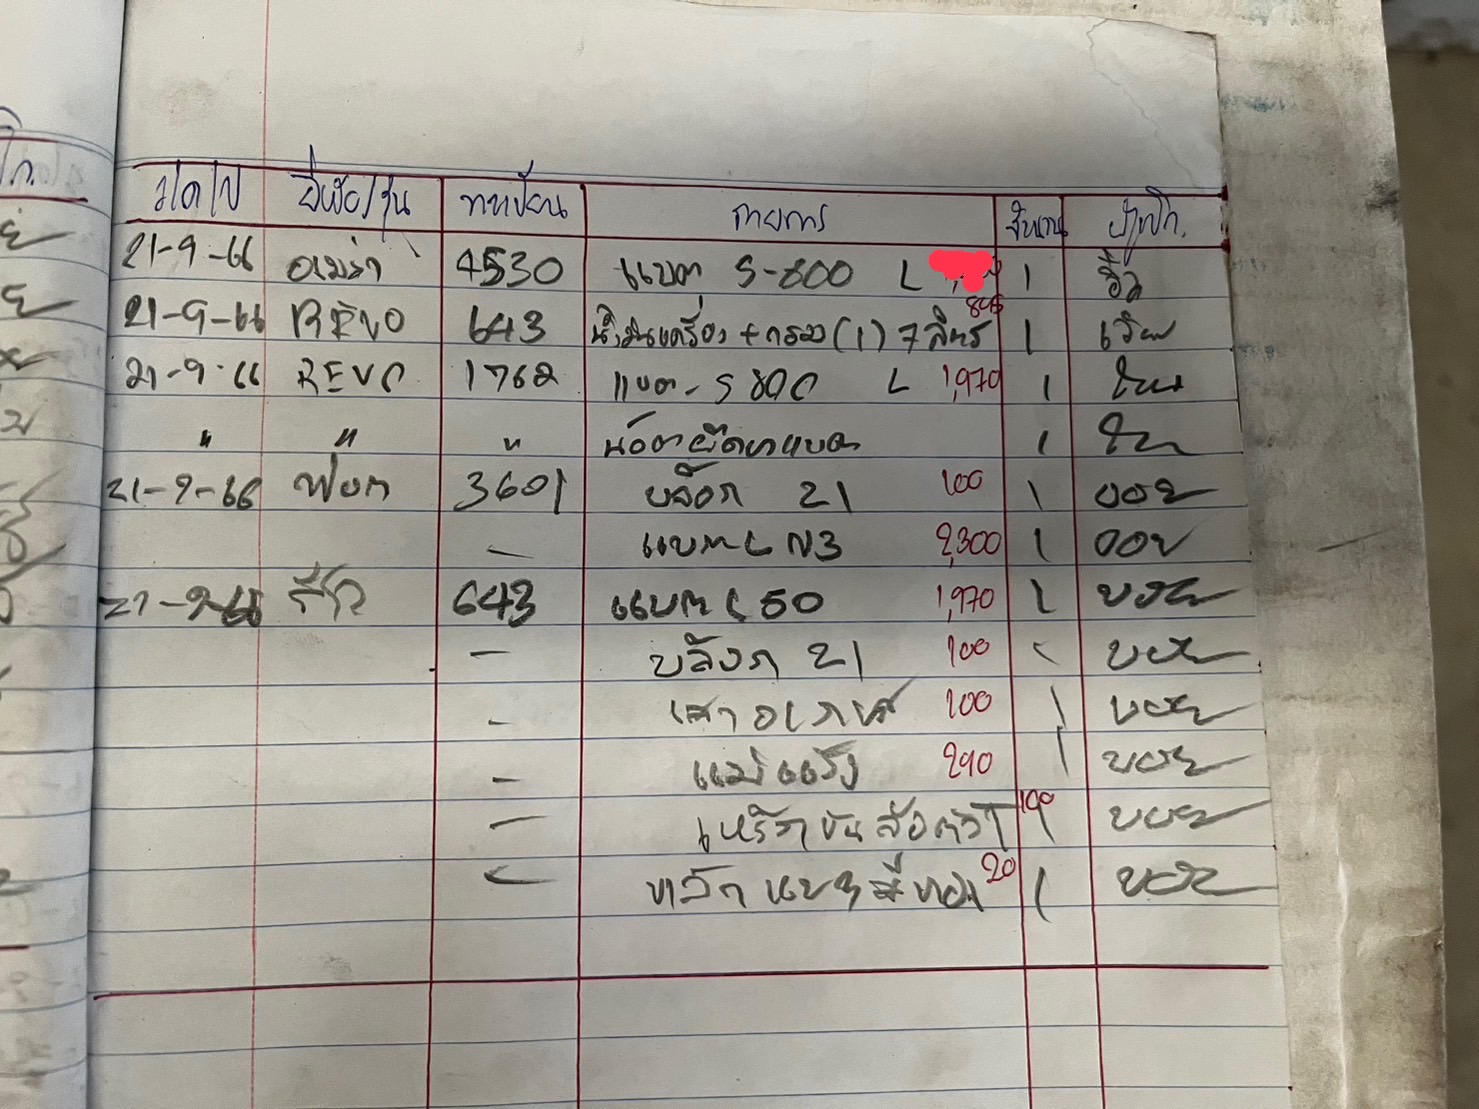 ว/ด/ป ยี่ห้อ/รุ่น ทะเบียน รายการ จำนวน ผู้เบิก.
21-9-66 4530 แบต S-800 L 1
21-9-66 REVO 643 น้ำมันเครื่อง + กรอง (1) 7 ลิตร 1
21-9-66 REVO 1762 แบต - S 800 L 1,970 1
" " " น๊อตยึดขาแบต 1
21-9-66 ฟอด 3601 บล๊อก 21 100 1 บอย
— แบต L N3 2,300 1 บอย
21-9-66 643 แบต L 50 1,970 1 บอย
— บล๊อก 21 100 บอย
— เสาอากาศ 100 1 บอย
— แม่แรง 290 1 บอย
— เหล็กขันล้อตัว T 190 1 บอย
— 20 1 บอย